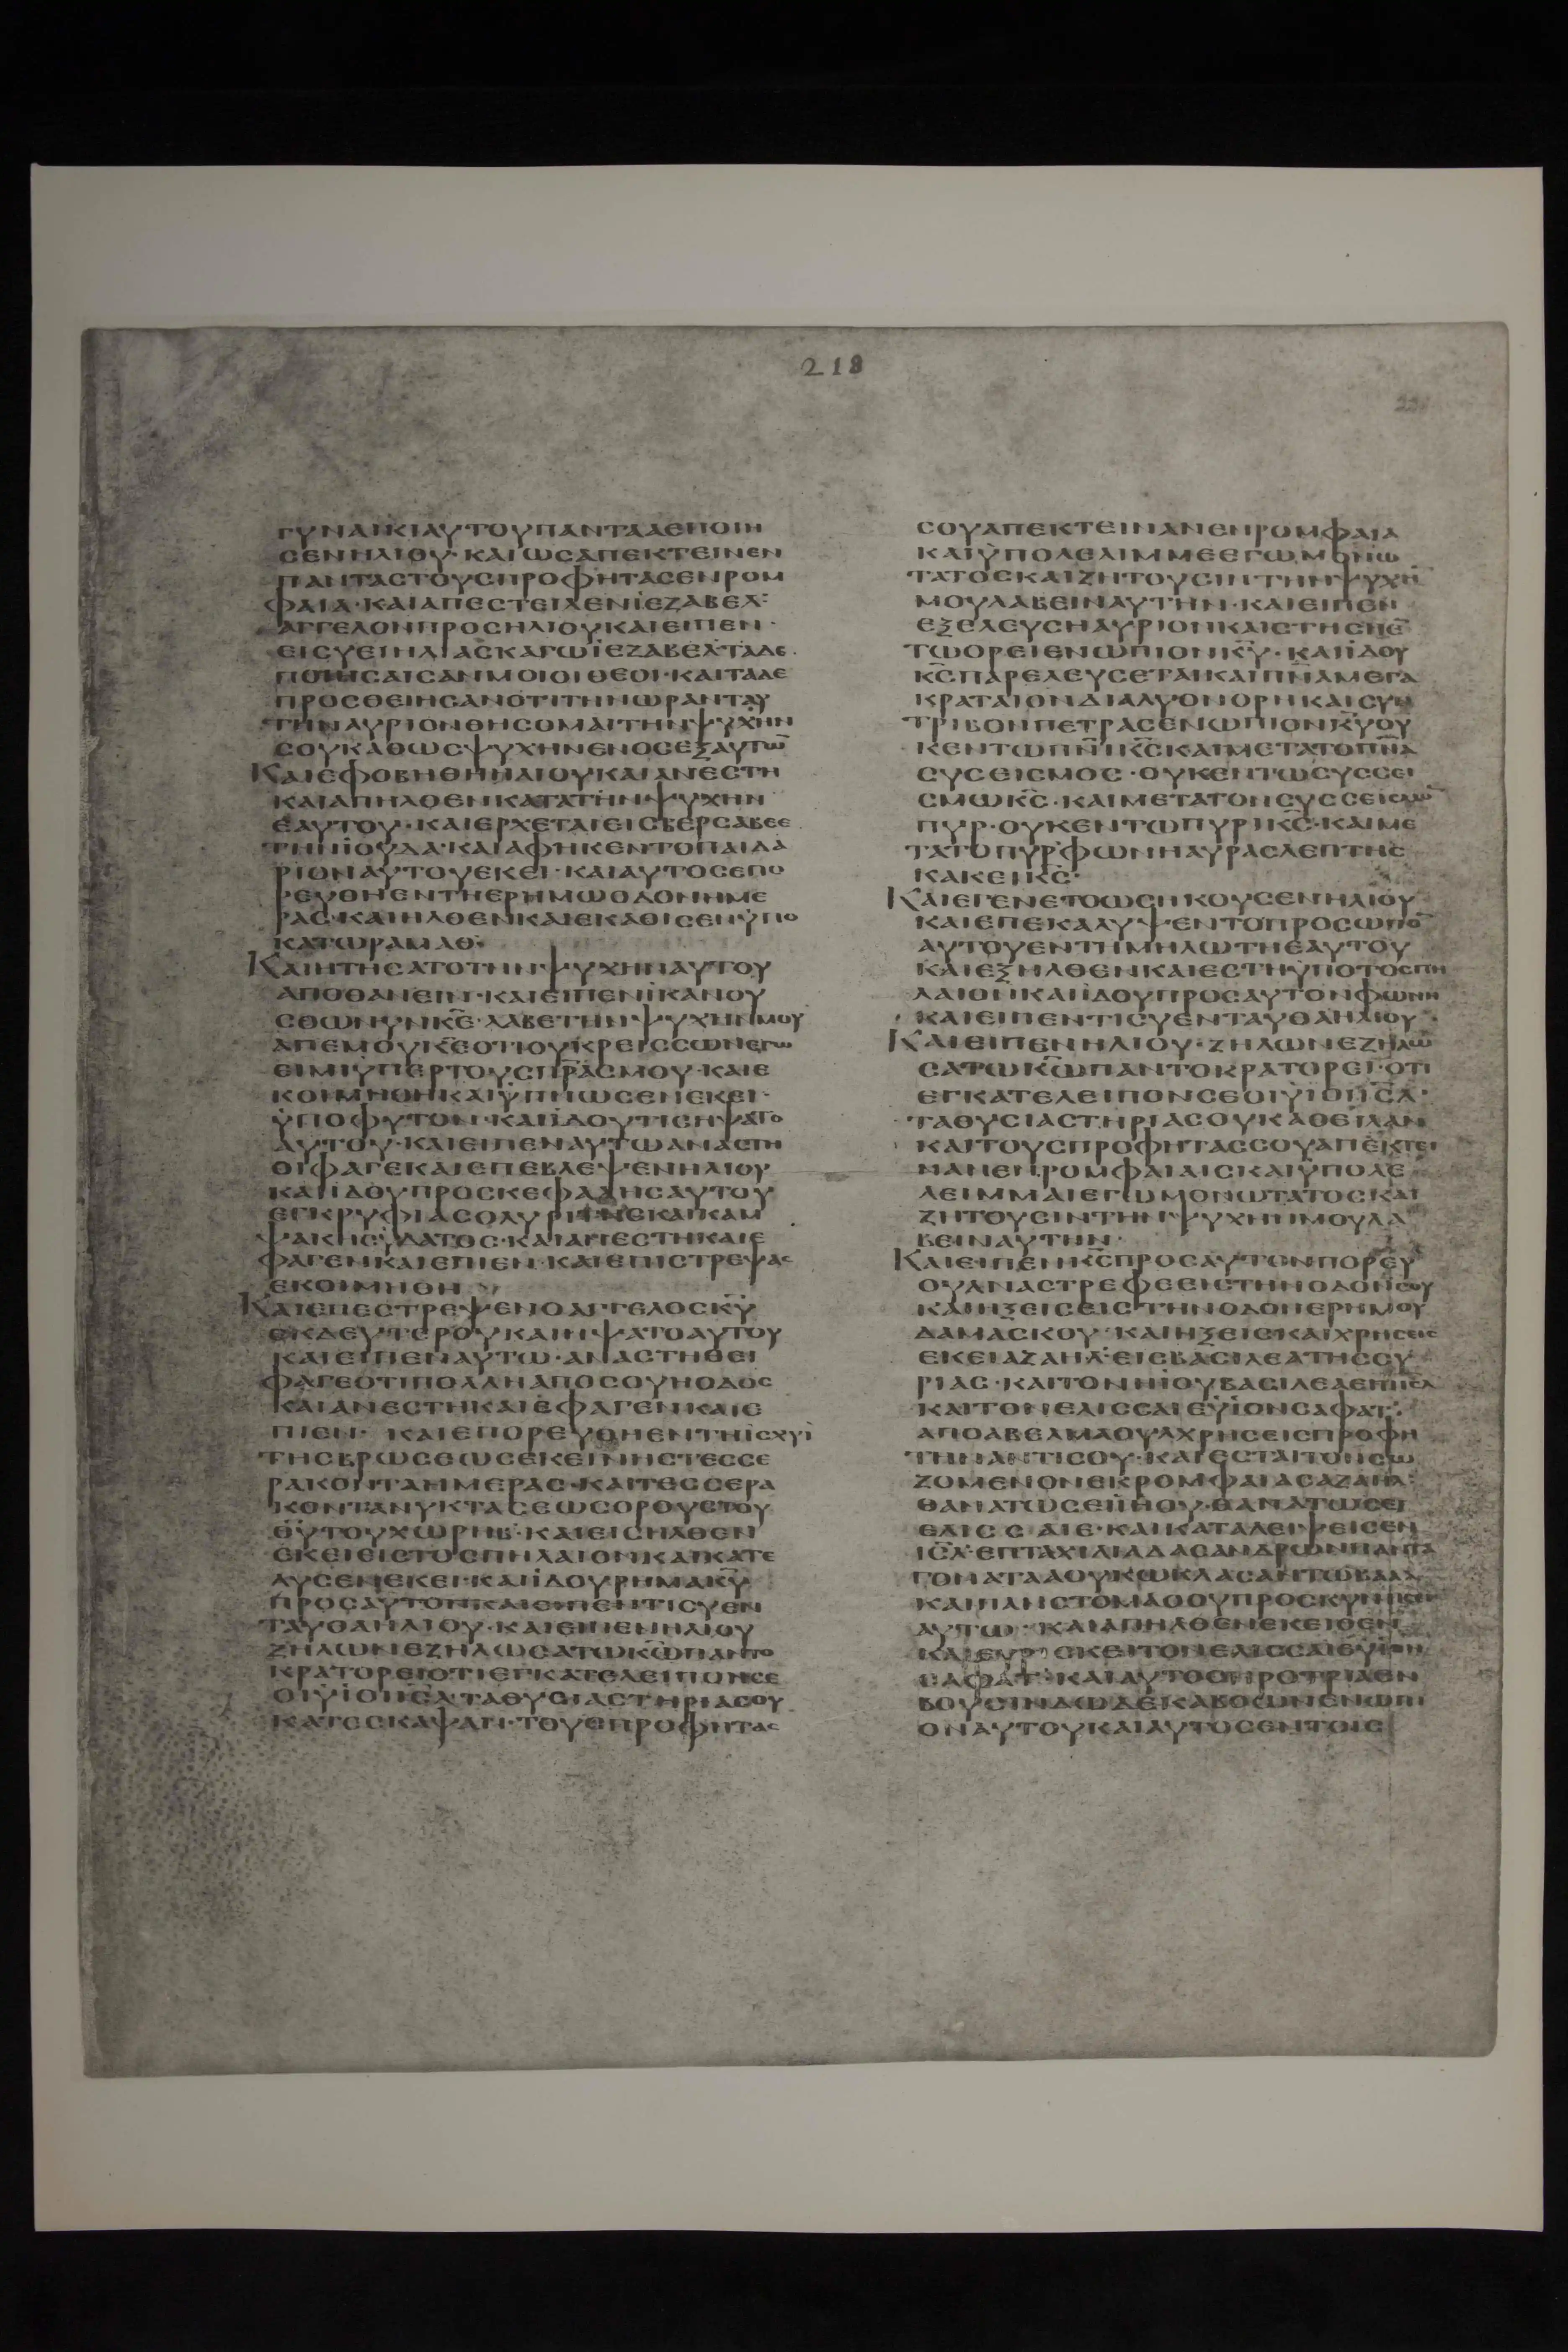 218
ΓΥΝΑΙΚΙΑΥΤΟΥΠΑΝΤΑΑΕΠΟΙΗ
ϹΕΝΗΛΙΟΥ·ΚΑΙΩϹΑΠΕΚΤΕΙΝΕΝ
ΠΑΝΤΑϹΤΟΥϹΠΡΟΦΗΤΑϹΕΝΡΟΜ
ΦΑΙΑ·ΚΑΙΑΠΕϹΤΕΙΛΕΝΪΕΖΑΒΕΛ·
ΑΓΓΕΛΟΝΠΡΟϹΗΛΙΟΥΚΑΙΕΙΠΕΝ·
ΕΙϹΥΕΙΗΛΙΑϹΚΑΓΩΪΕΖΑΒΕΛ·ΤΑΔΕ
ΠΟΙΗϹΑΙϹΑΝΜΟΙΟΙΘΕΟΙ·ΚΑΙΤΑΔΕ
ΠΡΟϹΘΕΙΗϹΑΝΟΤΙΤΗΝΩΡΑΝΤΑΥ
ΤΗΝΑΥΡΙΟΝΘΗϹΟΜΑΙΤΗΝΨΥΧΗΝ
ϹΟΥΚΑΘΩϹΨΥΧΗΝΕΝΟϹΕΞΑΥΤΩ̅
ΚΑΙΕΦΟΒΗΘΗΗΛΙΟΥΚΑΙΑΝΕϹΤΗ
ΚΑΙΑΠΗΛΘΕΝΚΑΤΑΤΗΝΨΥΧΗΝ
ΕΑΥΤΟΥ·ΚΑΙΕΡΧΕΤΑΙΕΙϹΒΕΡϹΑΒΕΕ
ΤΗΝΪΟΥΔΑ·ΚΑΙΑΦΗΚΕΝΤΟΠΑΙΔΑ
ΡΙΟΝΑΥΤΟΥΕΚΕΙ·ΚΑΙΑΥΤΟϹΕΠΟ
ΡΕΥΘΗΕΝΤΗΕΡΗΜΩΟΔΟΝΗΜΕ
ΡΑϹ·ΚΑΙΗΛΘΕΝΚΑΙΕΚΑΘΙϹΕΝΫΠΟ
ΚΑΤΩΡΑΜΑΘ·
ΚΑΙΗΤΗϹΑΤΟΤΗΝΨΥΧΗΝΑΥΤΟΥ
ΑΠΟΘΑΝΕΙΝ·ΚΑΙΕΙΠΕΝΪΚΑΝΟΥ
ϹΘΩΝΥΝΚ̅Ε̅·ΛΑΒΕΤΗΝΨΥΧΗΝΜΟΥ
ΑΠΕΜΟΥΚ̅Ε̅ΟΤΙΟΥΚΡΕΙϹϹΩΝΕΓΩ
ΕΙΜΙΫΠΕΡΤΟΥϹΠ̅Ρ̅Α̅ϹΜΟΥ·ΚΑΙΕ
ΚΟΙΜΗΘΗΚΑΙΫΠΝΩϹΕΝΕΚΕΙ·
ΫΠΟΦΥΤΟΝ·ΚΑΙΪΔΟΥΤΙϹΗΨΑΤΟ
ΑΥΤΟΥ·ΚΑΙΕΙΠΕΝΑΥΤΩΑΝΑϹΤΗ
ΘΙΦΑΓΕΚΑΙΕΠΕΒΛΕΨΕΝΗΛΙΟΥ
ΚΑΙΪΔΟΥΠΡΟϹΚΕΦΑΛΗϹΑΥΤΟΥ
ΕΓΚΡΥΦΙΑϹΟΛΥΡΙΤΗϹΚΑΙΚΑΜ
ΨΑΚΗϹΫΔΑΤΟϹ·ΚΑΙΑΝΕϹΤΗΚΑΙΕ
ΦΑΓΕΝΚΑΙΕΠΙΕΝ·ΚΑΙΕΠΙϹΤΡΕΨΑϹ
ΕΚΟΙΜΗΘΗ
ΚΑΙΕΠΕϹΤΡΕΨΕΝΟΑΓΓΕΛΟϹΚ̅Υ̅
ΕΚΔΕΥΤΕΡΟΥΚΑΙΗΨΑΤΟΑΥΤΟΥ
ΚΑΙΕΙΠΕΝΑΥΤΩ·ΑΝΑϹΤΗΘΕΙ
ΦΑΓΕΟΤΙΠΟΛΛΗΑΠΟϹΟΥΗΟΔΟϹ
ΚΑΙΑΝΕϹΤΗΚΑΙΕΦΑΓΕΝΚΑΙΕ
ΠΙΕΝ· ΚΑΙΕΠΟΡΕΥΘΗΕΝΤΗΪϹΧΥΪ
ΤΗϹΒΡΩϹΕΩϹΕΚΕΙΝΗϹΤΕϹϹΕ
ΡΑΚΟΝΤΑΗΜΕΡΑϹ·ΚΑΙΤΕϹϹΕΡΑ
ΚΟΝΤΑΝΥΚΤΑϹΕΩϹΟΡΟΥϹΤΟΥ
Θ̅Υ̅ΤΟΥΧΩΡΗΒ·ΚΑΙΕΙϹΗΛΘΕΝ
ΕΚΕΙΕΙϹΤΟϹΠΗΛΑΙΟΝΚΑΙΚΑΤΕ
ΛΥϹΕΝΕΚΕΙ·ΚΑΙΪΔΟΥΡΗΜΑΚ̅Υ̅
ΠΡΟϹΑΥΤΟΝΚΑΙΕΙΠΕΝΤΙϹΥΕΝ
ΤΑΥΘΑΗΛΙΟΥ·ΚΑΙΕΙΠΕΝΗΛΙΟΥ
ΖΗΛΩΝΕΖΗΛΩϹΑΤΩΚ̅Ω̅ΠΑΝΤΟ
ΚΡΑΤΟΡΕΙΟΤΙΕΓΚΑΤΕΛΕΙΠΟΝϹΕ
ΟΙΫΪΟΙΙ̅Ϲ̅Λ̅·ΤΑΘΥϹΙΑϹΤΗΡΙΑϹΟΥ
ΚΑΤΕϹΚΑΨΑΝ·ΤΟΥϹΠΡΟΦΗΤΑϹ
ϹΟΥΑΠΕΚΤΕΙΝΑΝΕΝΡΟΜΦΑΙΑ
ΚΑΙΫΠΟΛΕΛΙΜΜΕΕΓΩΜΟΝΩ
ΤΑΤΟϹΚΑΙΖΗΤΟΥϹΙΝΤΗΝΨΥΧΗ̅
ΜΟΥΛΑΒΕΙΝΑΥΤΗΝ·ΚΑΙΕΙΠΕΝ
ΕΞΕΛΕΥϹΗΑΥΡΙΟΝΚΑΙϹΤΗϹΗΕ̅
ΤΩΟΡΕΙΕΝΩΠΙΟΝΚ̅Υ̅·ΚΑΙΪΔΟΥ
Κ̅Ϲ̅ΠΑΡΕΛΕΥϹΕΤΑΙΚΑΙΠ̅Ν̅Α̅ΜΕΓΑ
ΚΡΑΤΑΙΟΝΔΙΑΛΥΟΝΟΡΗΚΑΙϹΥΝ
ΤΡΙΒΟΝΠΕΤΡΑϹΕΝΩΠΙΟΝΚ̅Υ̅ΟΥ
ΚΕΝΤΩΠ̅Ν̅Ι̅Κ̅Ϲ̅ΚΑΙΜΕΤΑΤΟΠ̅Ν̅Α̅
ϹΥϹΕΙϹΜΟϹ·ΟΥΚΕΝΤΩϹΥϹϹΕΙ
ϹΜΩΚ̅Ϲ̅·ΚΑΙΜΕΤΑΤΟΝϹΥϹϹΕΙϹΜΟ̅
ΠΥΡ·ΟΥΚΕΝΤΩΠΥΡΙΚ̅Ϲ̅·ΚΑΙΜΕ
ΤΑΤΟΠΥΡΦΩΝΗΑΥΡΑϹΛΕΠΤΗϹ
ΚΑΚΕΙΚ̅Ϲ̅·
ΚΑΙΕΓΕΝΕΤΟΩϹΗΚΟΥϹΕΝΗΛΙΟΥ
ΚΑΙΕΠΕΚΑΛΥΨΕΝΤΟΠΡΟϹΩΠΟ̅
ΑΥΤΟΥΕΝΤΗΜΗΛΩΤΗΕΑΥΤΟΥ
ΚΑΙΕΞΗΛΘΕΝΚΑΙΕϹΤΗΫΠΟΤΟϹΠΗ
ΛΑΙΟΝΚΑΙΪΔΟΥΠΡΟϹΑΥΤΟΝΦΩΝΗ
ΚΑΙΕΙΠΕΝΤΙϹΥΕΝΤΑΥΘΑΗΛΙΟΥ·
ΚΑΙΕΙΠΕΝΗΛΙΟΥ·ΖΗΛΩΝΕΖΗΛΩ
ϹΑΤΩΚ̅Ω̅ΠΑΝΤΟΚΡΑΤΟΡΕΙ·ΟΤΙ
ΕΓΚΑΤΕΛΕΙΠΟΝϹΕΟΙΫΪΟΙΙ̅Ϲ̅Λ̅·
ΤΑΘΥϹΙΑϹΤΗΡΙΑϹΟΥΚΑΘΕΙΛΑΝ
ΚΑΙΤΟΥϹΠΡΟΦΗΤΑϹϹΟΥΑΠΕΚΤΕΙ
ΝΑΝΕΝΡΟΜΦΑΙΑΙϹΚΑΙΫΠΟΛΕ
ΛΕΙΜΜΑΙΕΓΩΜΟΝΩΤΑΤΟϹΚΑΙ
ΖΗΤΟΥϹΙΝΤΗΝΨΥΧΗΝΜΟΥΛΑ
ΒΕΙΝΑΥΤΗΝ·
ΚΑΙΕΙΠΕΝΚ̅Ϲ̅ΠΡΟϹΑΥΤΟΝΠΟΡΕΥ
ΟΥΑΝΑϹΤΡΕΦΕΕΙϹΤΗΝΟΔΟΝϹΟΥ
ΚΑΙΗΞΕΙϹΕΙϹΤΗΝΟΔΟΝΕΡΗΜΟΥ
ΔΑΜΑϹΚΟΥ·ΚΑΙΗΞΕΙϹΚΑΙΧΡΗϹΕΙϹ
ΕΚΕΙΑΖΑΗΛ·ΕΙϹΒΑϹΙΛΕΑΤΗϹϹΥ
ΡΙΑϹ·ΚΑΙΤΟΝΗΙΟΥΒΑϹΙΛΕΑΕΠΙΙ̅Ϲ̅Λ̅
ΚΑΙΤΟΝΕΛΙϹϹΑΙΕΫΪΟΝϹΑΦΑΤ·
ΑΠΟΑΒΕΛΜΑΟΥΛΧΡΗϹΕΙϹΠΡΟΦΗ
ΤΗΝΑΝΤΙϹΟΥ·ΚΑΙΕϹΤΑΙΤΟΝϹΩ
ΖΟΜΕΝΟΝΕΚΡΟΜΦΑΙΑϹΑΖΑΗΛ·
ΘΑΝΑΤΩϹΕΙΗΟΥ·ΘΑΝΑΤΩϹΕΙ
ΕΛΙϹϹΑΙΕ·ΚΑΙΚΑΤΑΛΕΙΨΕΙϹΕΝ
Ι̅Ϲ̅Λ̅·ΕΠΤΑΧΙΛΙΑΔΑϹΑΝΔΡΩΝΠΑΝΤΑ
ΓΟΝΑΤΑΑΟΥΚΩΚΛΑϹΑΝΤΩΒΑΑΛ
ΚΑΙΠΑΝϹΤΟΜΑΟΟΥΠΡΟϹΚΥΝΗϹΕΝ
ΑΥΤΩ·ΚΑΙΑΠΗΛΘΕΝΕΚΕΙΘΕΝ
ΚΑΙΕΥΡΙϹΚΕΙΤΟΝΕΛΙϹϹΑΙΕΫΪΟΝ
ϹΑΦΑΤ·ΚΑΙΑΥΤΟϹΗΡΟΤΡΙΑΕΝ
ΒΟΥϹΙΝΔΩΔΕΚΑΒΟΩΝΕΝΩΠΙ
ΟΝΑΥΤΟΥΚΑΙΑΥΤΟϹΕΝΤΟΙϹ